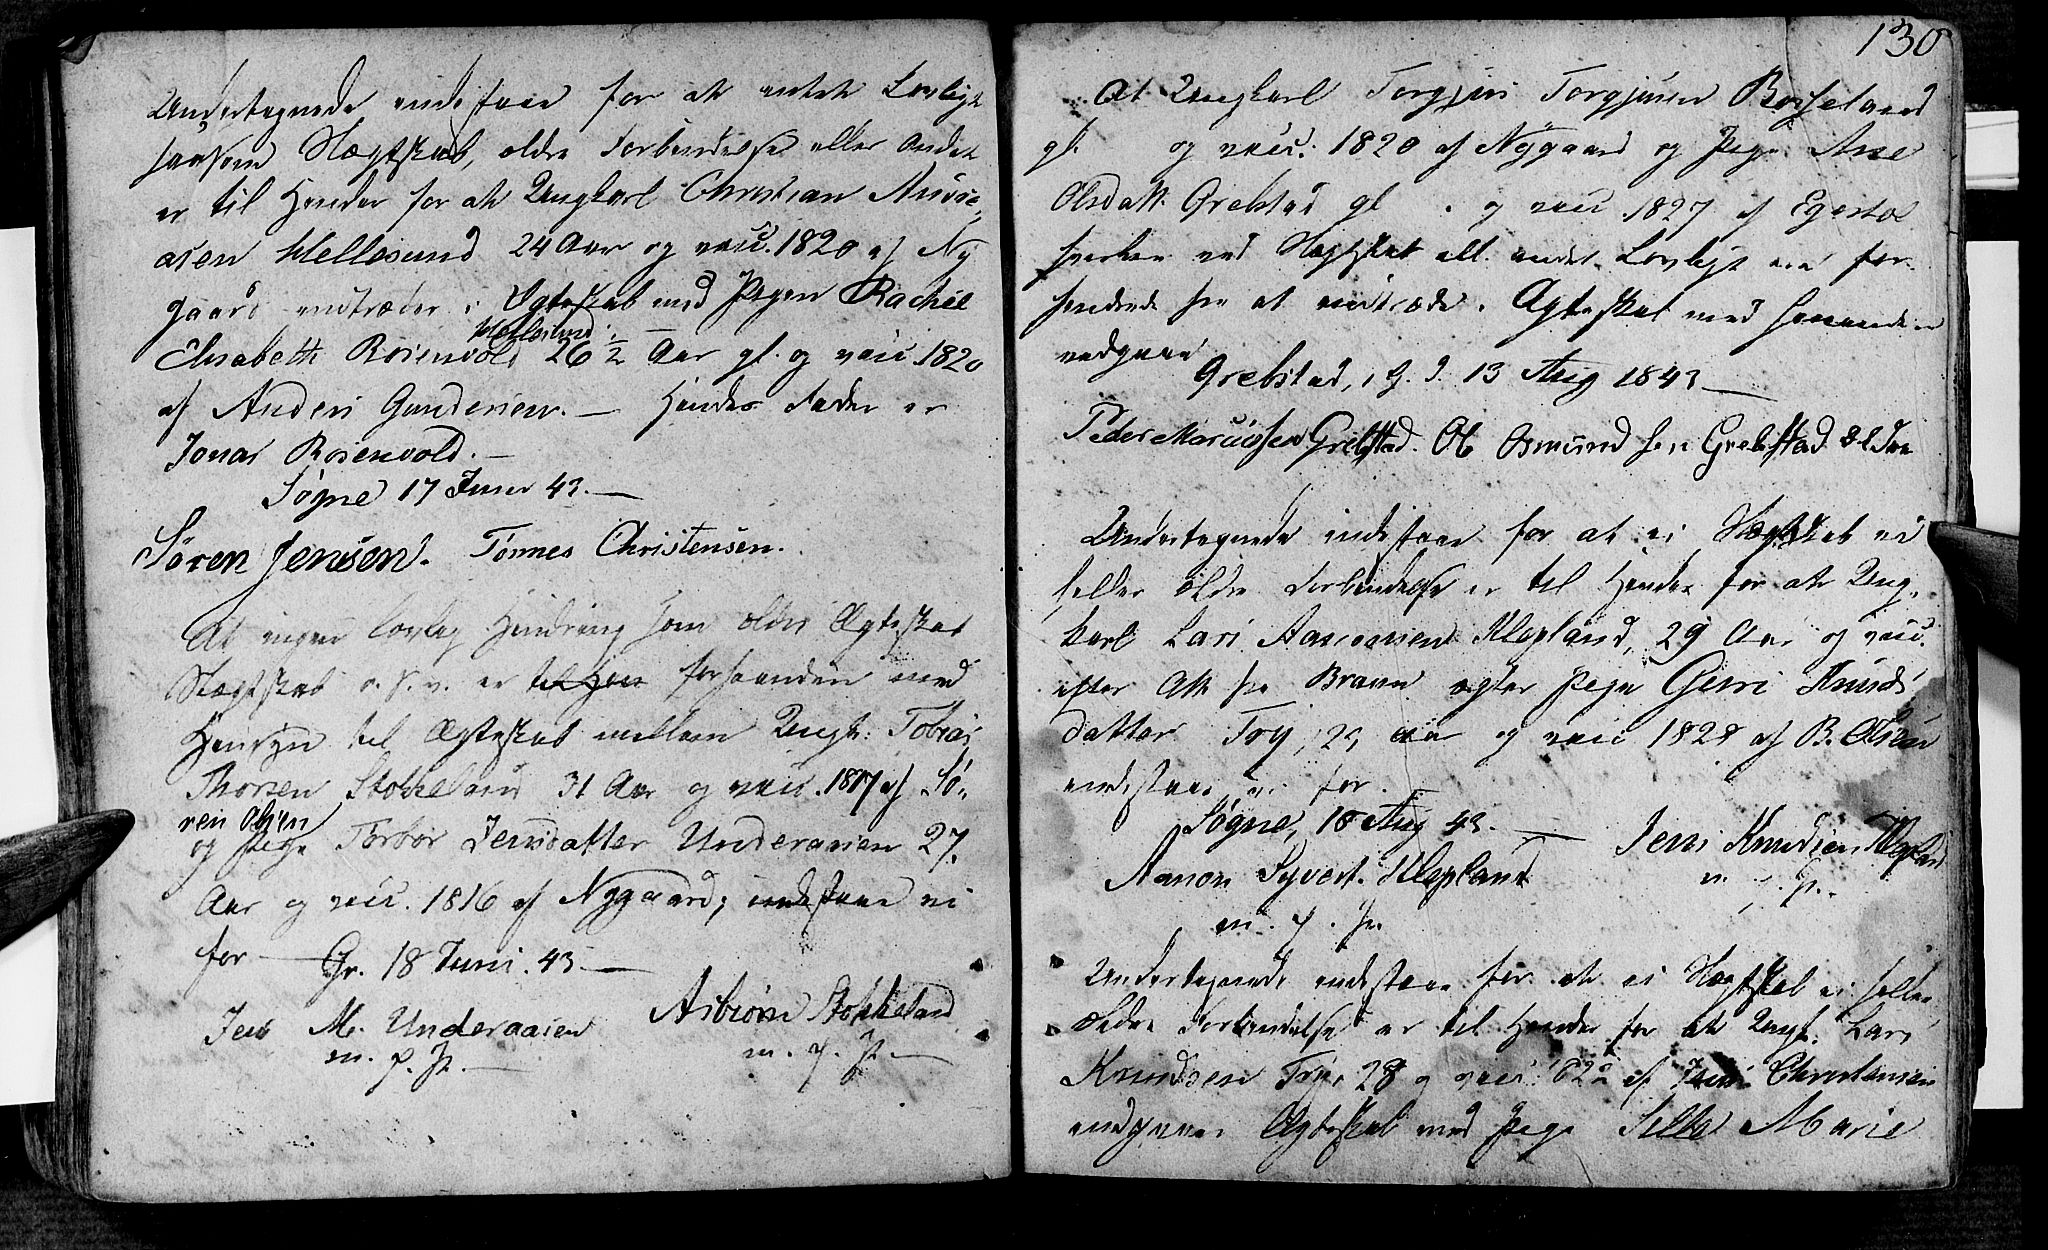 Undertegnede indestaae for at intet Lovligt
saasom Slægtskab, ældre Forbindelse eller andet
er til Hinder for at Ungkarl Christian
asen Hellesund 24 Aar og vacc. 1820 af Ny
gaard indtræder i Ægteskab med Pigen Rachel
Hellesund
Elisabeth Rosenvold 26 1/2 Aar gl. og vacc 1820
af Anders Gundersen. — Hendes Fader er
Jonas Rosenvold. —
Søgne 17 Juni 43. —
Sören Jensen. Tønnes Christensen.
At ingen lovlig Hindring som ældre Ægteskab
Slægtskab o. s. v. er forhaanden med
Hensyn til Ægteskab mellem Ungk: Tobias
Thorsen Stokkeland 31 Aar og vacc. 1817 af Sø-
ren Olsen
og Pige Torbor Jensdatter Underaasen 27
Aar og vacc. 1816 af Nygaard; indestaae vi
for — Gr. 18 Juni 43. —
Jens M. Underaasen Asbiörn Stokkeland
m. p. P. — m. p. P. —
130
At Ungkarl Torgjus Torgjusen
gl. og vacc. 1820 af Nygaard og Pige Ane
Olsdatt. Grebstad gl . og vacc 1827 af Egestøl
hverken ved Slægtskab ell. andet Lovligt ere for-
hindrede fra at indtræde i Ægteskab med hinanden
vedgaae
Grebstad, i G. d. 13 Aug 1843 —
Peder Grebstad. Ole Osmundsen Grebstad Eldre
Undertegnede indestaae for at ei Slægtskab ei
heller ældre Forbindelse er til Hinder for at Ung-
karl Lars Aanonsen Klepland, 29 Aar og vacc.
efter Att fra Brann ægter Pige Knuds
datter Try, 23 Aar og vacc 1828 af B. Olsen
indestaae vi for.
Søgne, 18 Aug 43. — Jens Knudsen Klepland
Aanon Syvert. Klepland m. p. P.
m. p. P.
Undertegnede indestaae for at ei Slægtskab ei heller
ældre Forbindelse er til Hinder for at Ungk. Lars
Knudsen Try, 28 og vacc. af Jens Christensen
indgaaer Ægteskab med Pige Marie